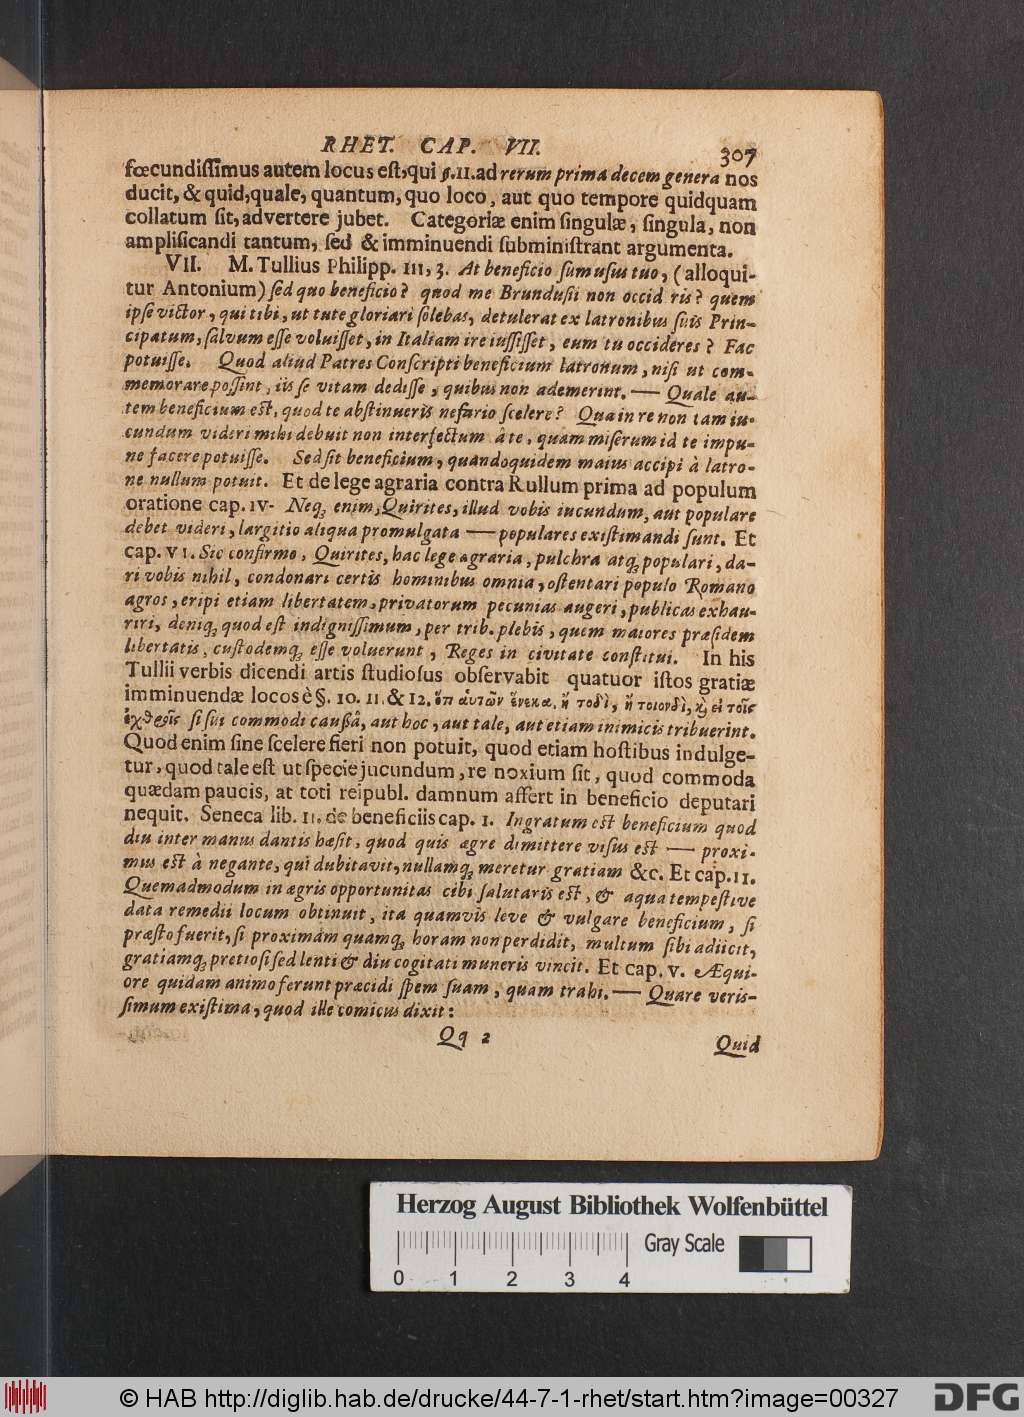 RHET. CAP. VII. 307
fœcundiſſimus autem locus eſt, qui §. 11. ad rerum prima decem genera nos
ducit, & quid, quale, quantum, quo loco, aut quo tempore quidquam
collatum ſit, advertere jubet. Categoriæ enim ſingulæ, ſingula, non
amplificandi tantum, ſed & imminuendi ſubminiſtrant argumenta.
VII. M. Tullius Philipp. III, 3. At beneficio ſum uſus tuo, (alloqui-
tur Antonium) ſed quo beneficio? quod me Brunduſii non occid ris? quem
ipſe victor, qui tibi, ut tute gloriari ſolebas, detulerat ex latronibus ſuis Prin-
cipatum, ſalvum eſſe voluiſſet, in Italiam ire iuſſiſſet, eum tu occideres? Fac
potuiſſe. Quod aliud Patres Conſcripti beneficium latronum, niſi ut com-
memorare poſſint, iis ſe vitam dediſſe, quibus non ademerint. — Quale au-
tem beneficium eſt, quod te abſtinueris nefario ſcelere? Qua in re non tam iu-
cundum videri mihi debuit non interfectum â te, quam miſerum id te impu-
ne facere potuiſſe. Sed ſit beneficium, quandoquidem maius accipi à latro-
ne nullum potuit. Et de lege agraria contra Rullum prima ad populum
oratione cap. IV- Neq; enim, Quirites, illud vobis iucundum, aut populare
debet videri, largitio aliqua promulgata — populares exiſtimandi ſunt. Et
cap. VI. Sic confirmo, Quirites, hac lege agraria, pulchra atq; populari, da-
ri vobis nihil, condonari certis hominibus omnia, oſtentari populo Romano
agros, eripi etiam libertatem, privatorum pecunias augeri, publicas exhau-
riri, deniq; quod eſt indigniſſimum, per trib. plebis, quem maiores præſidem
libertatis, cuſtodemq; eſſe voluerunt, Reges in civitate conſtitui. In his
Tullii verbis dicendi artis ſtudioſus obſervabit quatuor iſtos gratiæ
imminuendæ locos è §. 10. 11. & 12. ὅτι αὑτῶν ἕνεκα, ἢ τοδὶ, ἢ τοιονδὶ, ϗ̀ εἰ τοῖς
ἐχθροῖς ſi ſui commodi cauſsâ, aut hoc, aut tale, aut etiam inimicis tribuerint.
Quod enim ſine ſcelere fieri non potuit, quod etiam hoſtibus indulge-
tur, quod tale eſt ut ſpecie jucundum, re noxium ſit, quod commoda
quædam paucis, at toti reipubl. damnum affert in beneficio deputari
nequit. Seneca lib. II. de beneficiis cap. I. Ingratum eſt beneficium quod
diu inter manus dantis hæſit, quod quis ægre dimittere viſus eſt — proxi-
mus eſt à negante, qui dubitavit, nullamq; meretur gratiam &c. Et cap. II.
Quemadmodum in ægris opportunitas cibi ſalutaris eſt, & aqua tempeſtive
data remedii locum obtinuit, ita quamvis leve & vulgare beneficium, ſi
præſto fuerit, ſi proximam quamq; horam non perdidit, multum ſibi adiicit,
gratiamq; pretioſi ſed lenti & diu cogitati muneris vincit. Et cap. V. Æqui-
ore quidam animo ferunt præcidi ſpem ſuam, quam trahi. — Quare veris-
ſimum exiſtima, quod ille comicus dixit:
Qq 2 Quid
Herzog August Bibliothek Wolfenbüttel
Gray Scale
0 1 2 3 4
© HAB http://diglib.hab.de/drucke/44-7-1-rhet/start.htm?image=00327
DFG